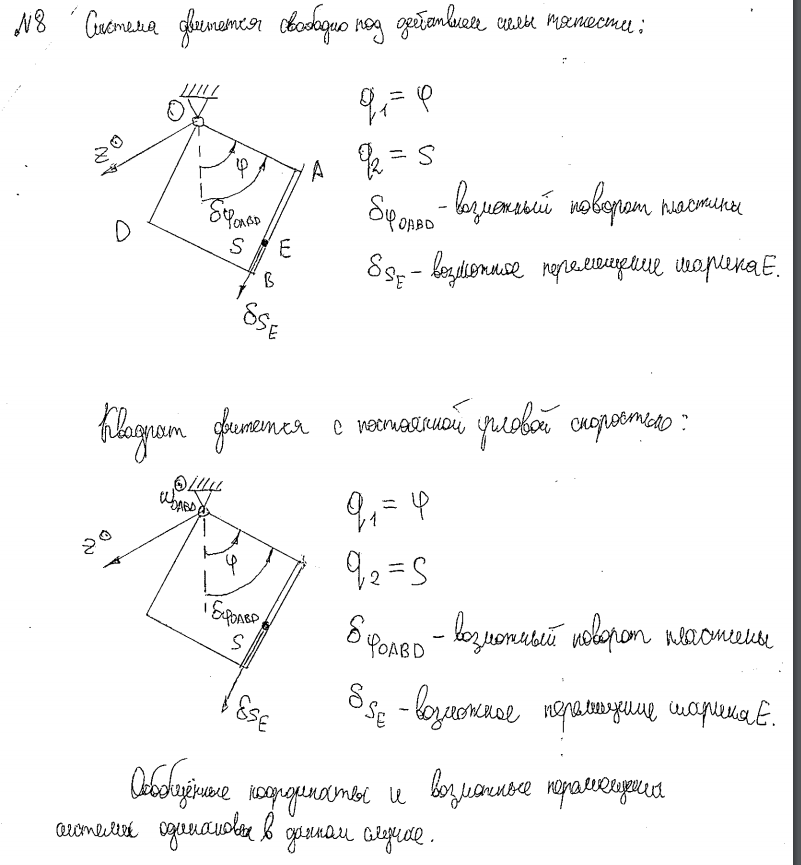 №8 Система движется свободно под действием силы тяжести:
O
q₁ = φ
z
φ
A
q₂ = S
δφ_OABD
δφ_OABD - возможный поворот пластины
D
S E
B
δS_E - возможное перемещение шарика E.
δS_E
Квадрат движется с постоянной угловой скоростью:
ω_OABD
q₁ = φ
z
φ
q₂ = S
δφ_OABD
S
δφ_OABD - возможный поворот пластины
δS_E
δS_E - возможное перемещение шарика E.
Обобщённые координаты и возможные перемещения
системы одинаковы в данном случае.